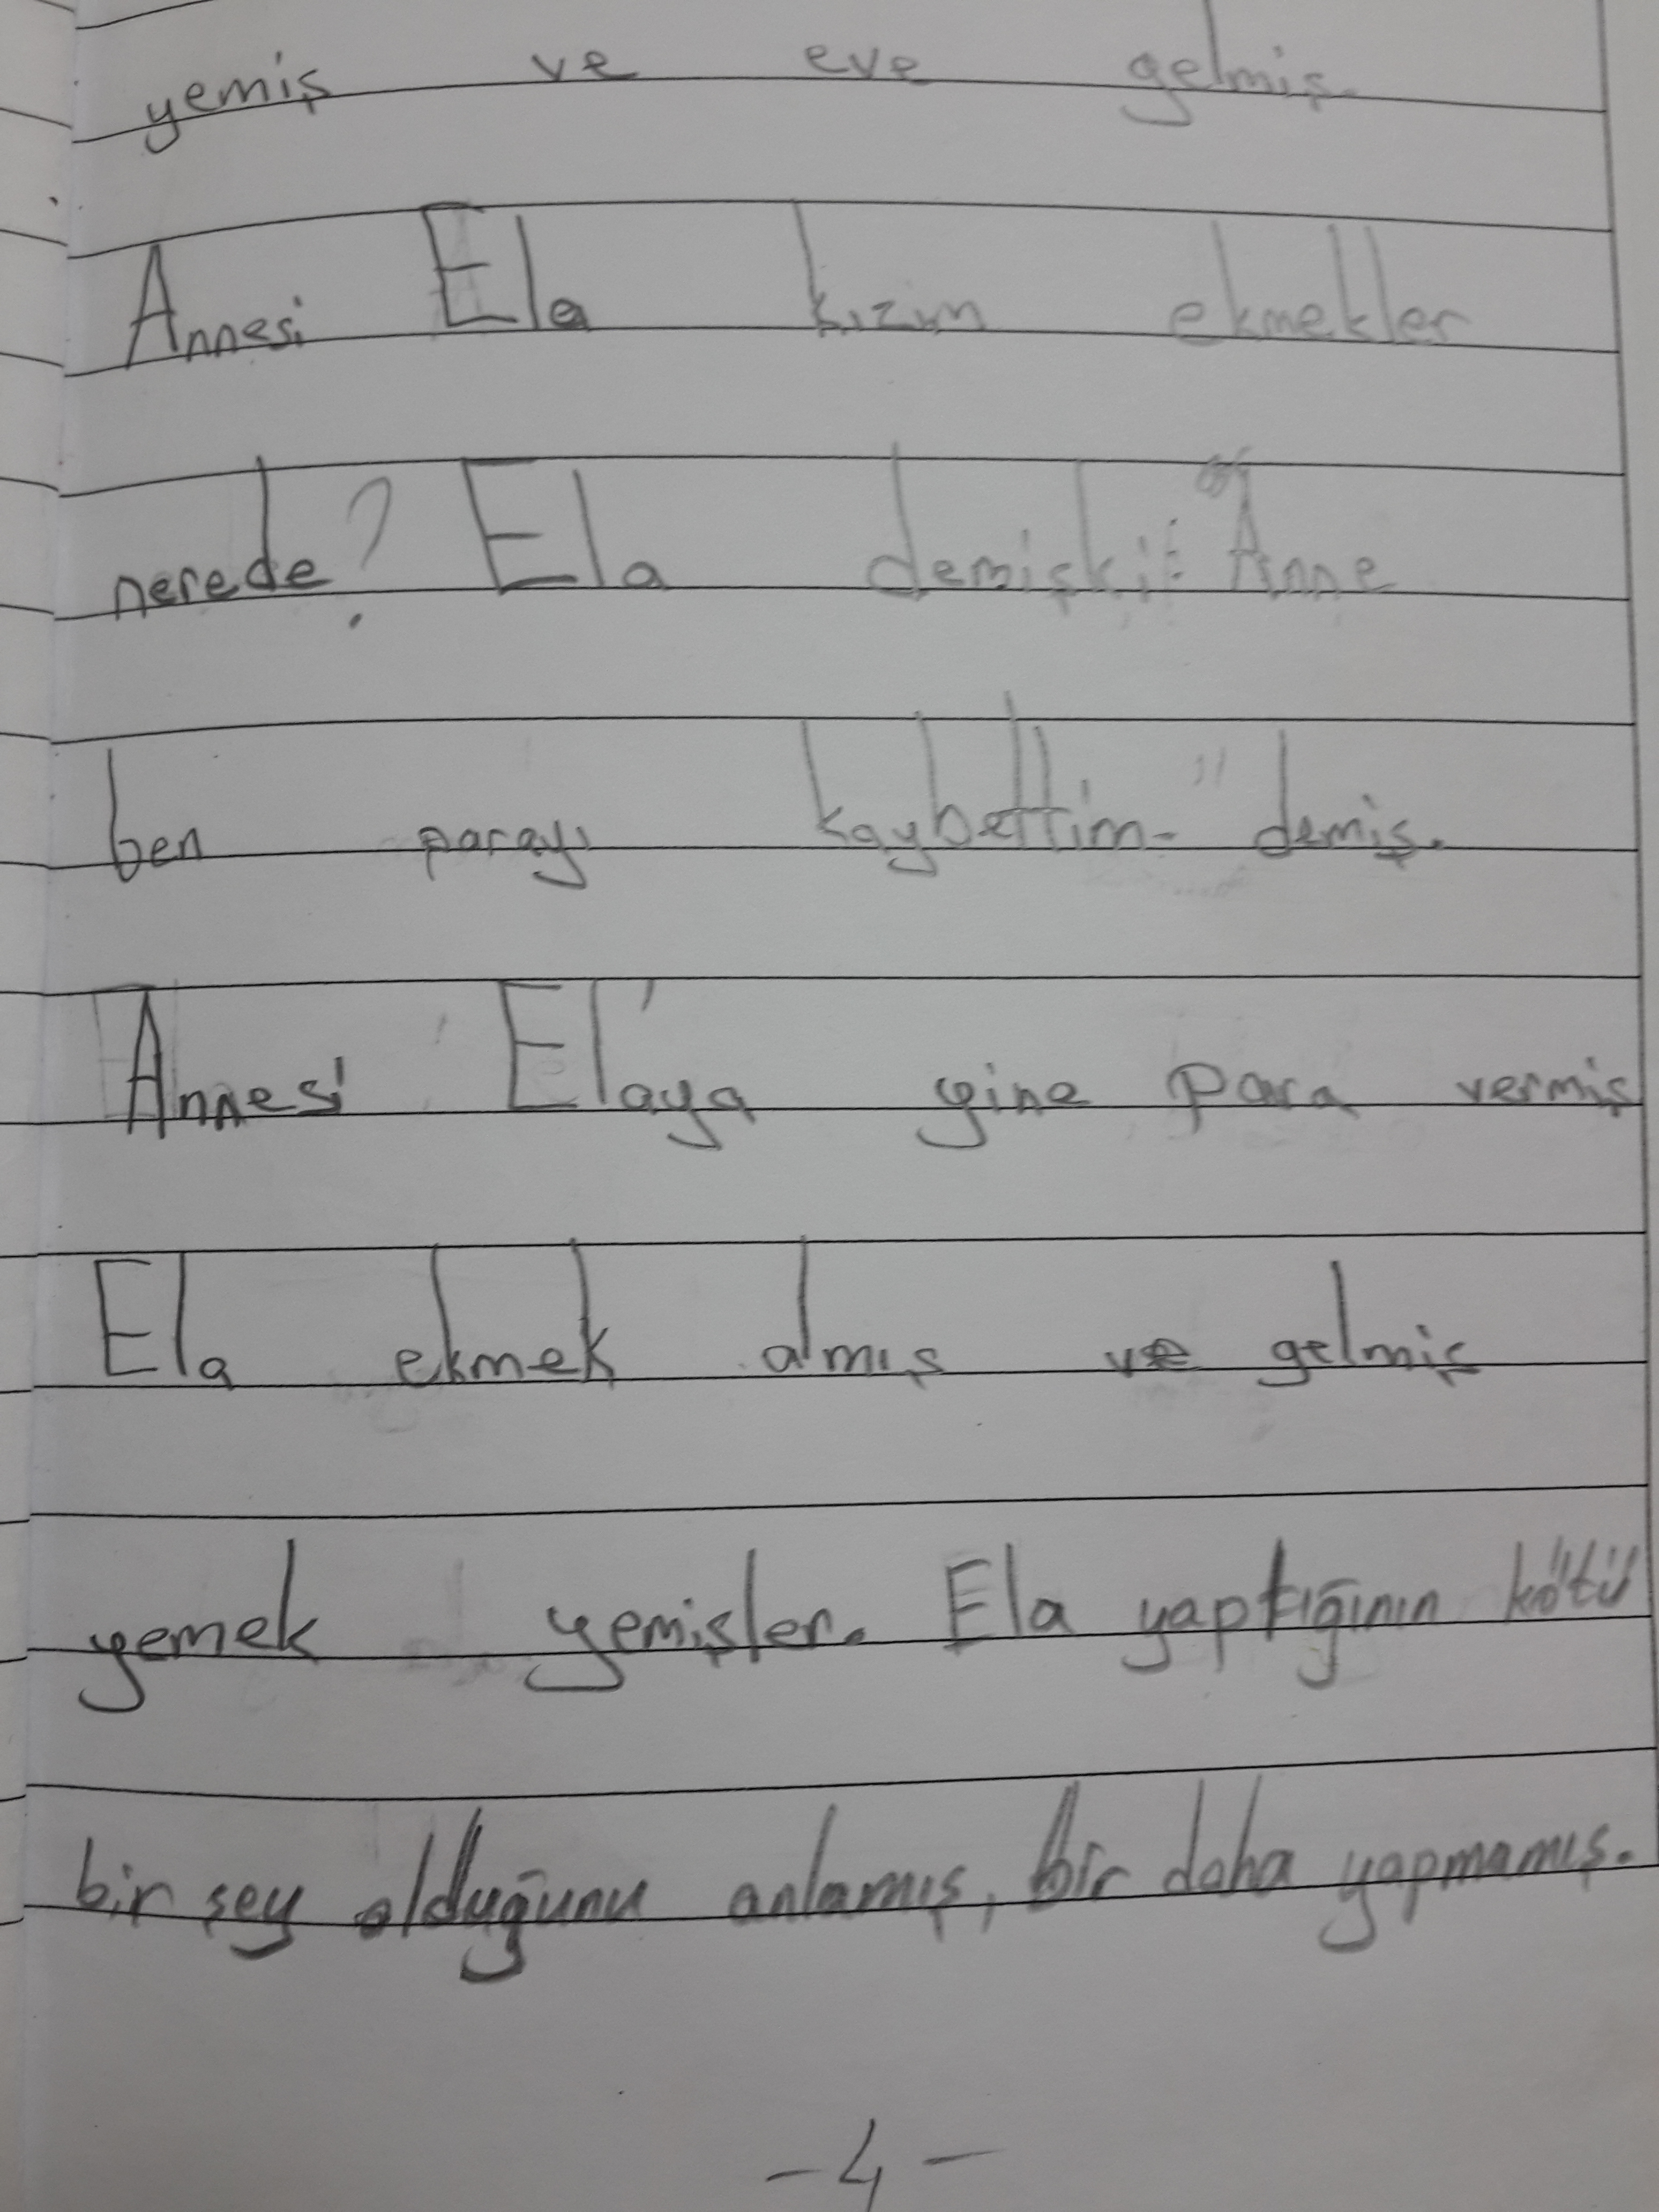 yemiş ve eve gelmiş.
Annesi Ela kızım ekmekler
nerede? Ela demişki: "Anne
ben parayı kaybettim." demiş.
Annesi Ela'ya yine para vermiş
Ela ekmek almış ve gelmiş
yemek yemişler. Ela yaptığının kötü
bir şey olduğunu anlamış, bir daha yapmamış.
-4-